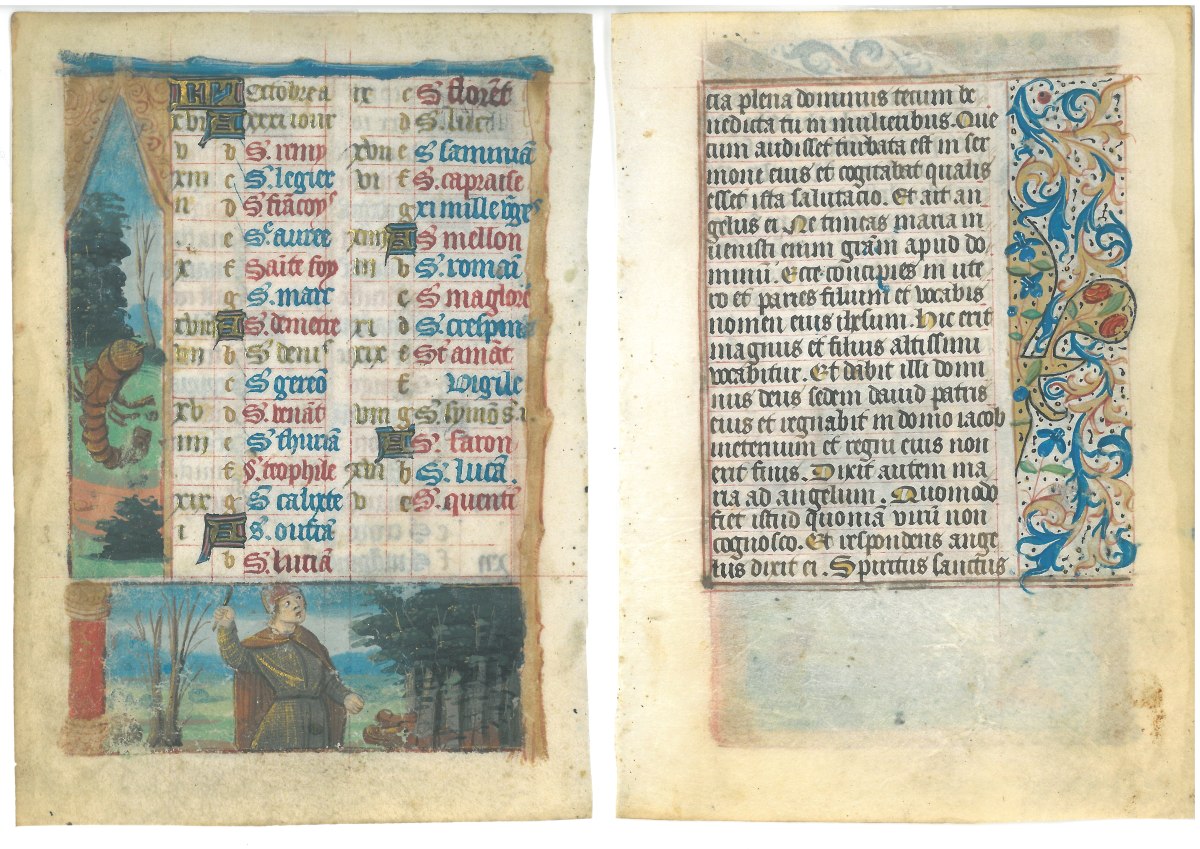 Octobre a
xvi A xxxi iour
v b S. remy
xiii c S. legier
ii d S. fracoys
e S. auree
x f Saīte foy
g S. marc
xviii A S. demetre
vii b S. denis
c S. gereō
xv d S. venāt
iiii e S. thuriā
f S. trophile
xix g S. calixte
i A S. outiā
b S. luciā
ix c S florēt
d S. luc
xvii e S. samuiā
vi f S. capraise
g xi mille vges
xiiii A S mellon
iii b S. romaī
c S. magloire
xi d S. crespin
xix e St amāt
f Vigile
viii g S. symō s. i
A S. faron
xvi b S. lucā.
v c S. quentī
cia plena dominus tecum be
nedicta tu in mulieribus. Que
cum audisset turbata est in ser
mone eius et cogitabat qualis
esset ista salutacio. Et ait an
gelus ei. Ne timeas maria in
uenisti enim grām apud do
minū. Ecce concipies in ute
ro et paries filium et vocabis
nomen eius ihesum. Hic erit
magnus et filius altissimi
vocabitur. Et dabit illi domi
nus deus sedem dauid patris
eius et regnabit in domo iacob
ineternum et regni eius non
erit finis. Dixit autem ma
ria ad angelum. Quomodo
fiet istud quoniā virū non
cognosco. Et respondens ange
lus dixit ei. Spiritus sanctus